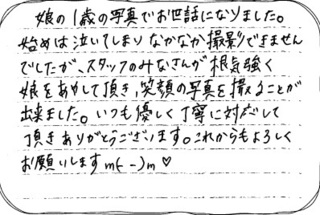 娘の1歳の写真でお世話になりました。
始めは泣いてしまりなかなか撮影できません
でしたが、スタッフのみなさんが根気強く
娘をあやして頂き、笑顔の写真を撮ることが
出来ました。いつも優しく丁寧に対応して
頂きありがとうございます。これからもよろしく
お願いしますm(--)m♡